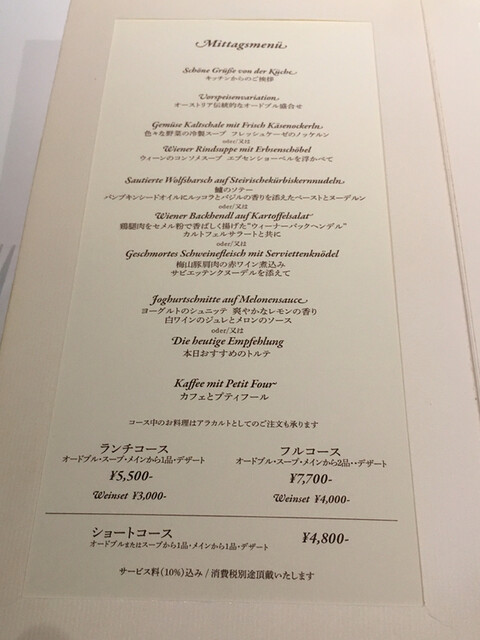 Mittagsmenü
Schöne Grüße von der Küche
キッチンからのご挨拶
Vorspeisenvariation
オーストリア伝統的なオードブル盛合せ
Gemüse Kaltschale mit Frisch Käsenockerln
色々な野菜の冷製スープ フレッシュケーゼのノッケルン
oder/又は
Wiener Rindsuppe mit Erbsenschöbel
ウィーンのコンソメスープ エプセンショーベルを浮かべて
Sautierte Wolfsbarsch auf Steirischekürbiskernnudeln
鱸のソテー
パンプキンシードオイルにルッコラとバジルの香りを添えたペーストとヌーデルン
oder/又は
Wiener Backhendl auf Kartoffelsalat
鶏腿肉をセメル粉で香ばしく揚げた"ウィーナーバックヘンデル"
カルトフェルサラートと共に
oder/又は
Geschmortes Schweinefleisch mit Serviettenknödel
梅山豚肩肉の赤ワイン煮込み
サビエッテンクヌーデルを添えて
Joghurtschnitte auf Melonensauce
ヨーグルトのシュニッテ 爽やかなレモンの香り
白ワインのジュレとメロンのソース
oder/又は
Die heutige Empfehlung
本日おすすめのトルテ
Kaffee mit Petit Four
カフェとプティフール
コース中のお料理はアラカルトとしてのご注文も承ります
ランチコース
オードブル・スープ・メインから1品・デザート
¥5,500-
Weinset ¥3,000-
フルコース
オードブル・スープ・メインから2品・・デザート
¥7,700-
Weinset ¥4,000-
ショートコース ¥4,800-
オードブルまたはスープから1品・メインから1品・デザート
サービス料(10%)込み / 消費税別途頂戴いたします